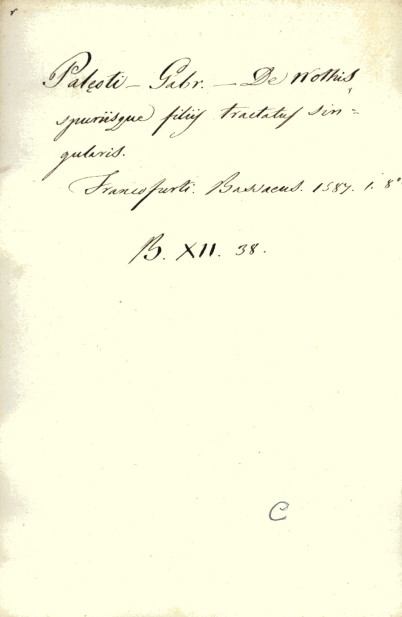 Palęoti - Gabr. - De Nothis
spuriisque filiis tractatus sin=
gularis.
Francofurti. Bassaeus. 1587. 1. 8°
B. XII. 38.
C